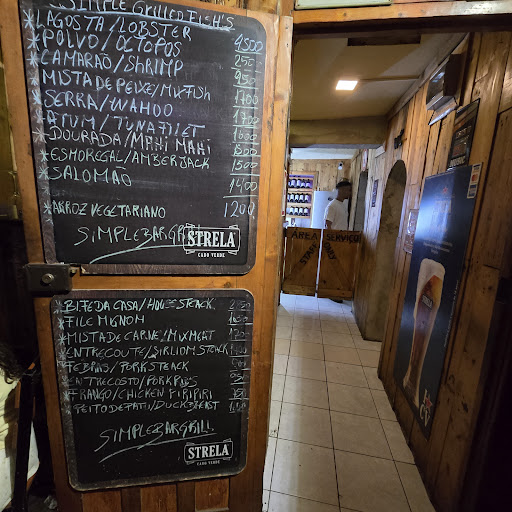 SIMPLE GRILLED FISH'S
*LAGOSTA/LOBSTER 4500
*POLVO/OCTOPOS
*CAMARÃO/SHRIMP
*MISTA DE PEIXE/MIXFISH
*SERRA/WAHOO 1700
*ATUM/TUNA FILET
*DOURADA/MAHI MAHI
*ESMOREGAL/AMBERJACK 1500
*SALOMÃO 1400
*ARROZ VEGETARIANO 1200
SIMPLEBARGRILL
STRELA
CABO VERDE
BIFE DA CASA/HOUSE STEACK
*FILE MIGNOM
*MISTA DE CARNE/MIXMEAT
*ENTRECOUTE/SIRLIOM STEACK
*FEBRAS/PORK STEACK
ENTRECOSTO/PORK RIBS
*FRANGO/CHICKEN PIRIPIRI
*PEITO DE PATO/DUCK BREAST
SIMPLEBARGRILL
STRELA
CABO VERDE
AREA SERVIÇO
STAFF ONLY